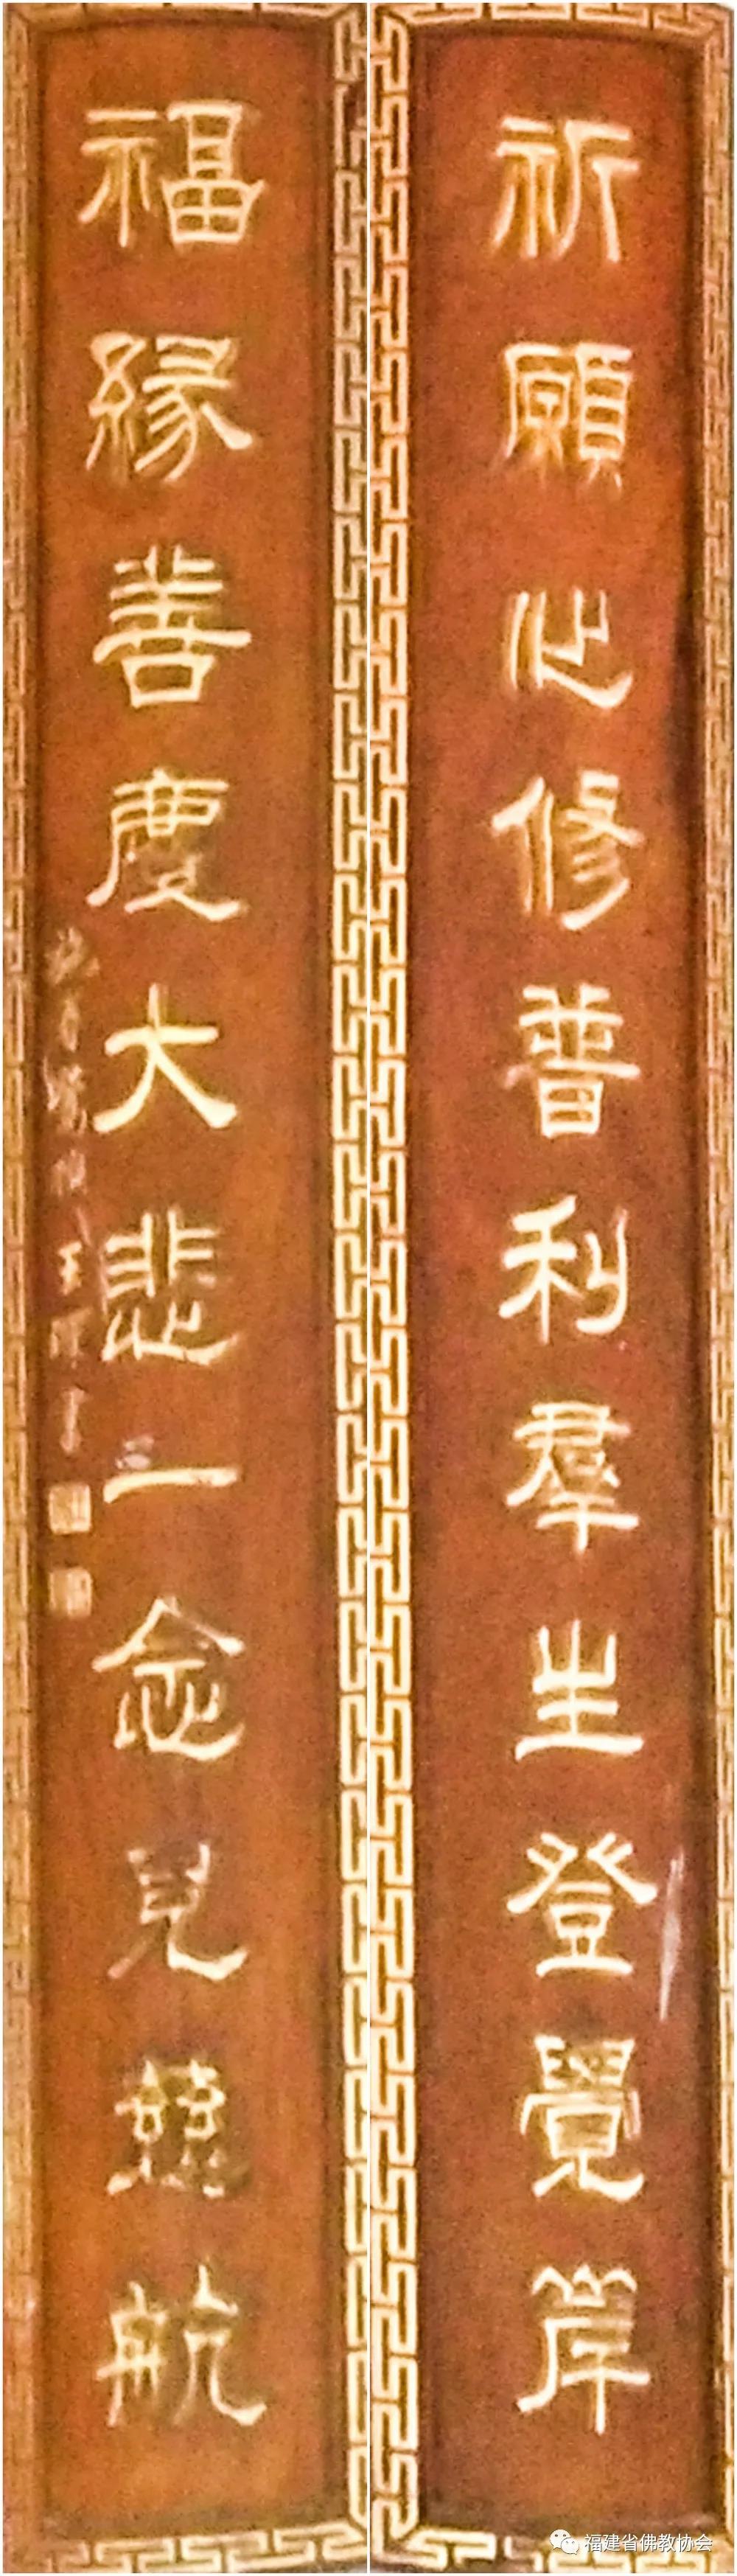 祈願心修普利羣生登覺岸
福緣善慶大悲一念見慈航
福建省佛教协会